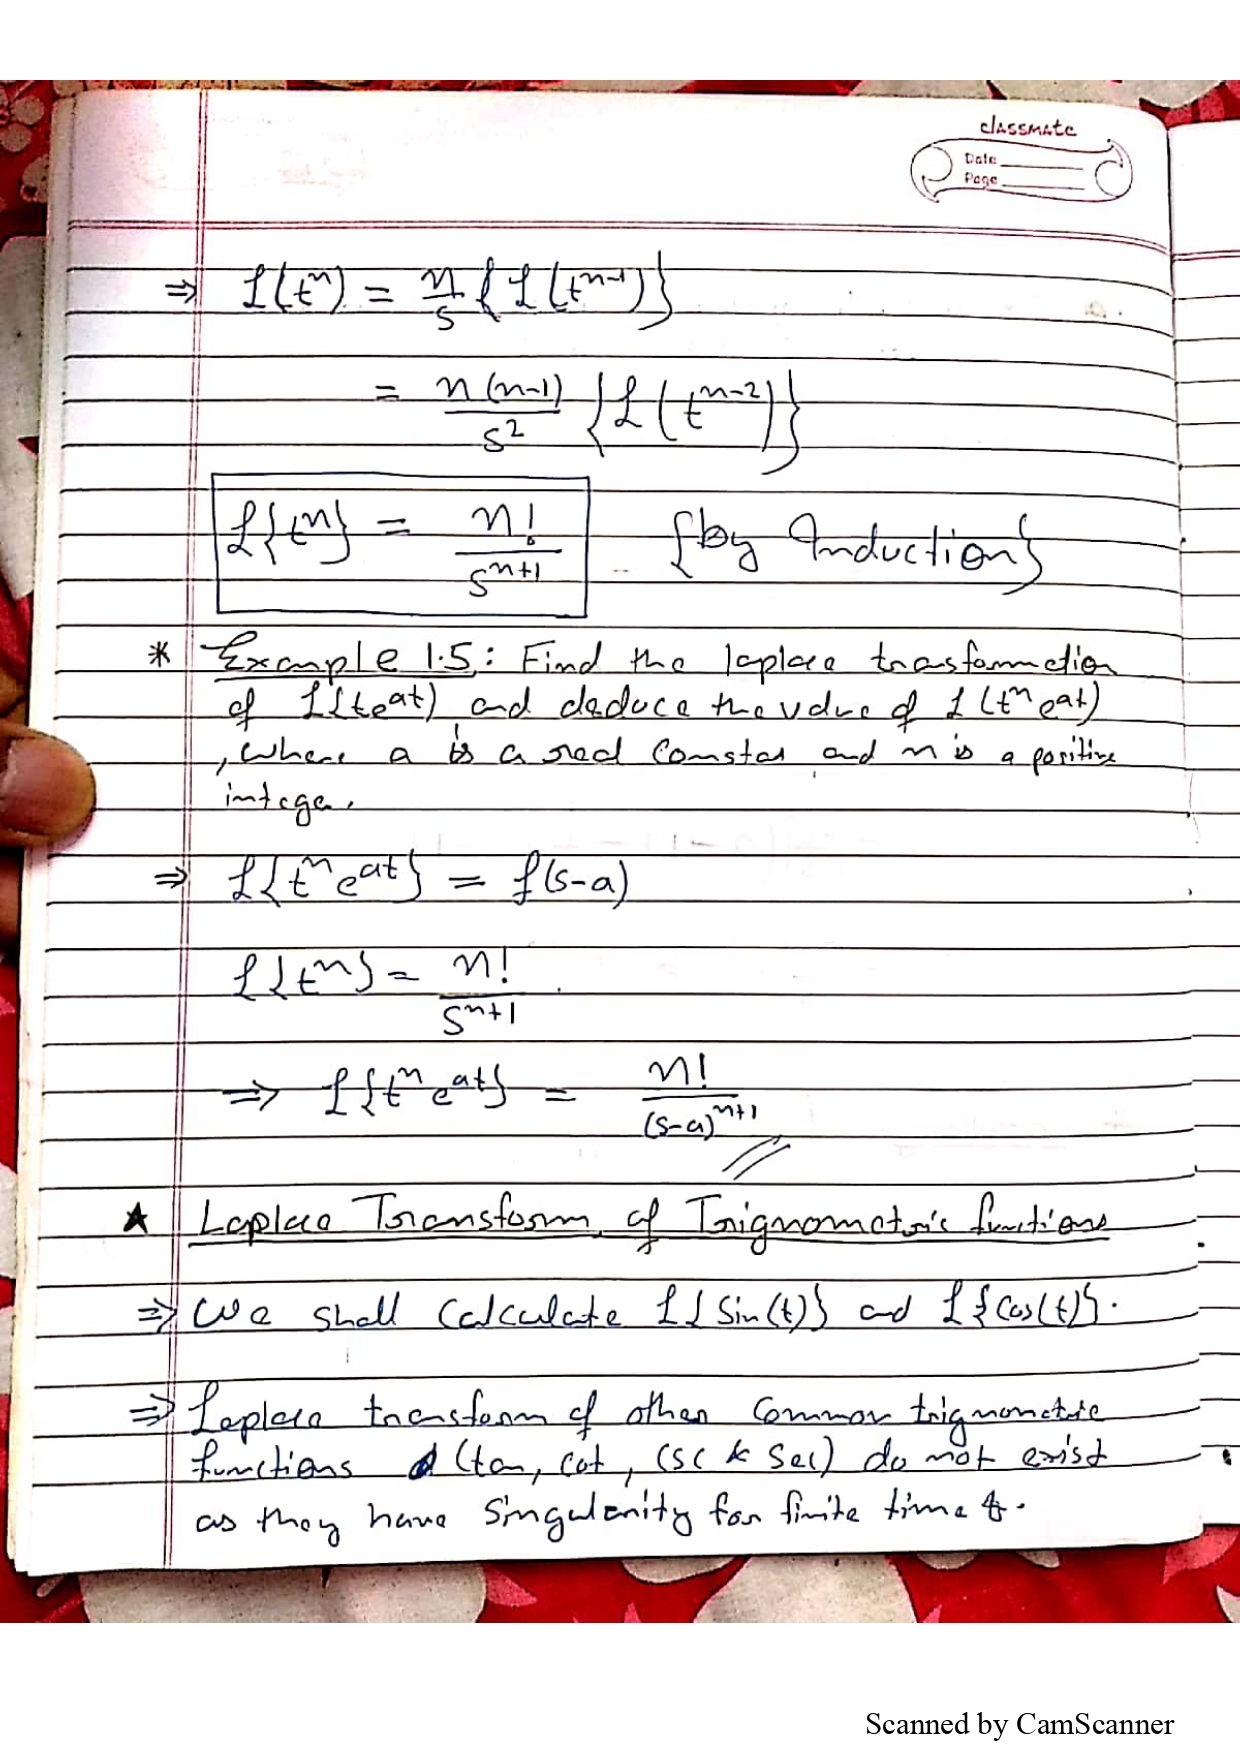 classmate
Date
Page
⇒ L(tⁿ) = n/s {L(tⁿ⁻¹)}
= n(n-1)/s² {L(tⁿ⁻²)}
L{tⁿ} = n!/sⁿ⁺¹ {by Induction}
* Example 1.5: Find the laplace transformation
of L{te^at) and deduce the value of L(tⁿe^at)
, where a is a real constat and n is a positive
integer.
⇒ L{tⁿe^at} = f(s-a)
L{tⁿ} = n!/sⁿ⁺¹
⇒ L{tⁿe^at} = n!/(s-a)ⁿ⁺¹
★ Laplace Transform of Trignometric functions
⇒ We shall calculate L{Sin(t)} and L{Cos(t)}.
⇒ Laplace transform of other common trignometric
functions (tan, cot, csc & sec) do not exist
as they have singularity for finite time t.
Scanned by CamScanner